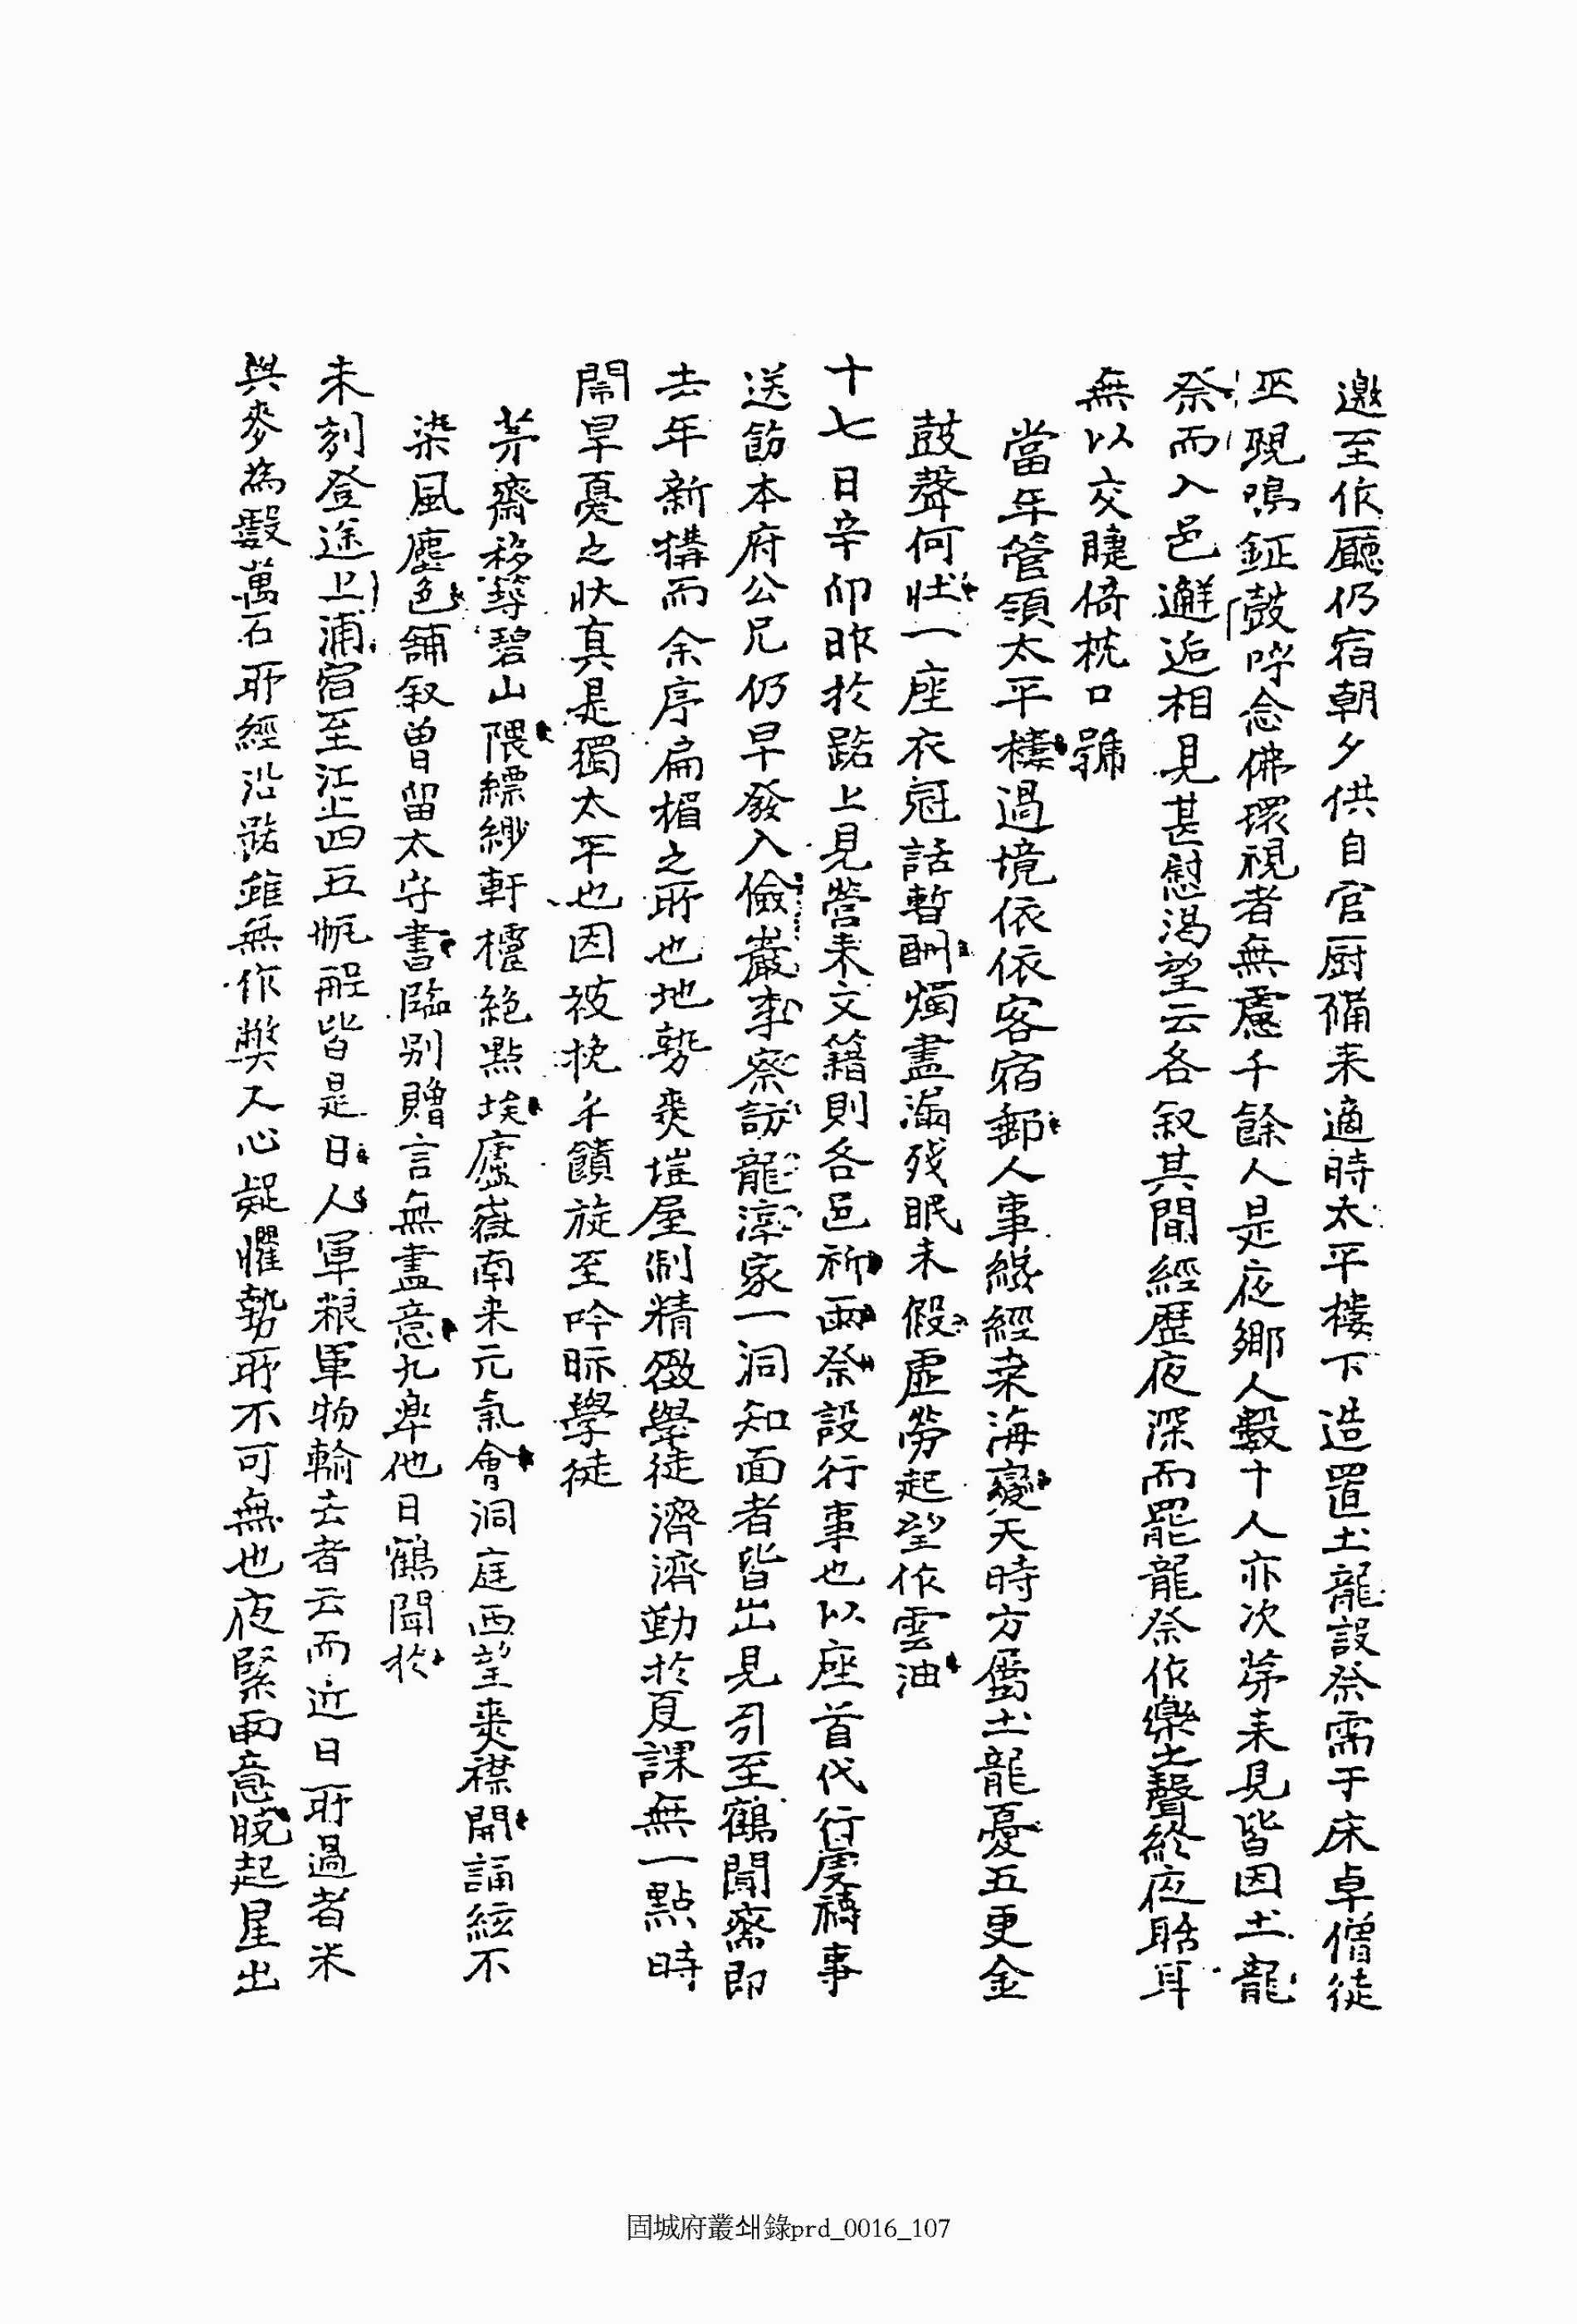 邀至作廳仍宿朝夕供自官厨備来適時太平樓下造置土龍設祭需于床卓僧徒
巫覡鳴鉦鼓呼念佛環視者無慮千餘人是夜鄕人數十人亦次苐来見皆因土龍
祭而入邑邂逅相見甚慰渴望云各叙其間經歷夜深而罷龍祭作樂之聲終夜聒耳
無以交睫倚枕口號
當年管領太平樓過境依依客宿郵人事緣經桒海變天時方屬土龍憂五更金
鼓聲何壯一座衣冠話暫酬燭盡漏残眠未假虛勞起望作雲油
十七日辛卯昨於路上見營来文籍則各邑祈雨祭設行事也以座首代行虔禱事
送飭本府公兄仍早發入儉巖李察訪龍濘家一洞知面者皆出見引至鶴聞齋即
去年新搆而余序扁楣之所也地勢爽塏屋制精緻學徒濟濟勤於夏課無一點時
鬧旱憂之状真是獨太平也因被挽午饋旋至吟眎學徒
茅齋移蕁碧山隈縹緲軒櫳絶點埃廬嶽南来元氣會洞庭西望爽襟開誦絃不
染風塵色舖叙曾留太守書臨別贈言無盡意九臯他日鶴聞於
未刻登途上浦宿至江上四五帆舡皆是日人軍粮軍物輸去者云而近日所過者米
與麥為數萬石所經沿路雖無作獘人心疑懼勢所不可無也夜緊雨意晩起星出
固城府叢쇄錄prd_0016_107